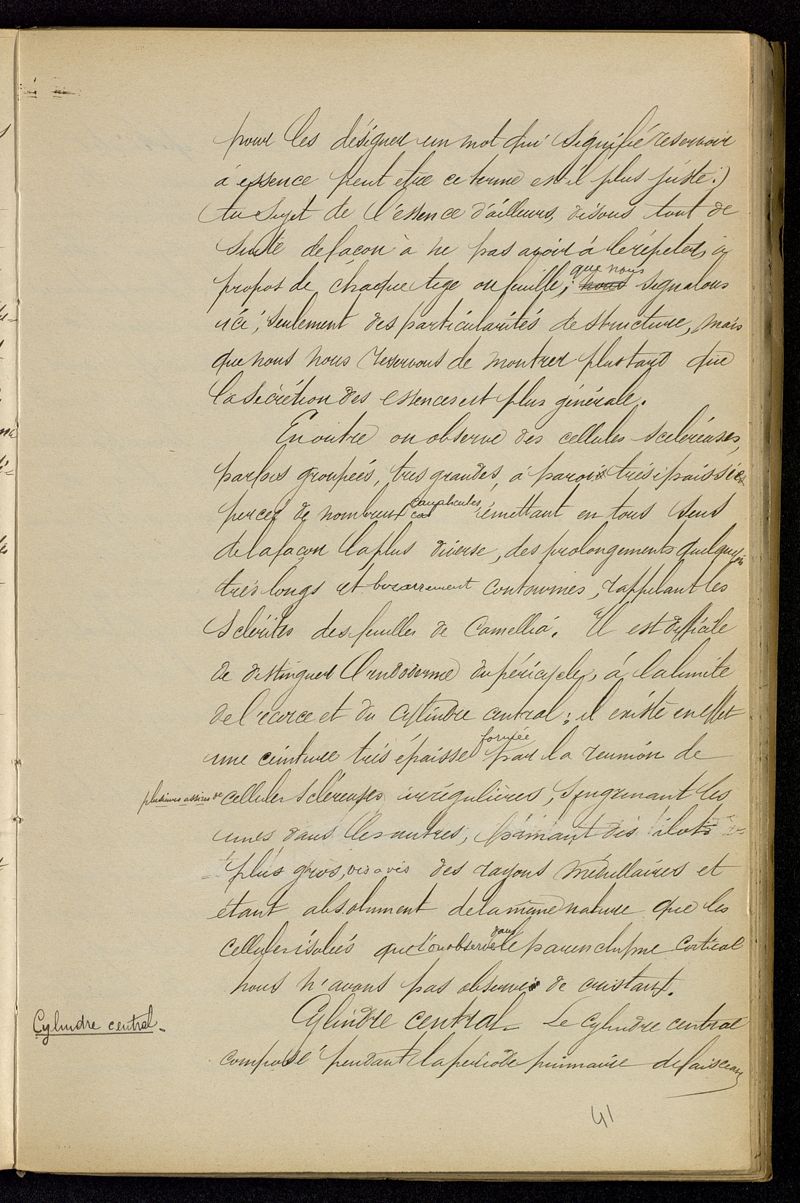 pour les désigner un mot qui signifie reservoir
à essence peut etre ce terme est il plus juste.)
Au sujet de l'essence d'ailleurs, disons tout de
suite de façon à ne pas avoir à le répéter, à
propos de chaque tige ou feuille, que nous signalons
ici, seulement des particularités de structure, mais
que nous nous reservons de montrer plus tard que
la sécrétion des essences est plus générale.
En outre on observe des cellules scléréuses,
parfois groupées, tres grandes, à parois très épaissies
percées de nombreux canalicules émettant en tous sens
de la façon la plus diverse, des prolongements quelquefois
très longs et bizarrement contournés, rappelant les
Sclérites des feuilles de Camellia. Il est difficile
de distinguer l'endoderme du péricycle, à la limite
de l'écorce et du cylindre central; il existe en effet
une ceinture très épaisse formée par la reunion de
plusieurs assises de cellules scléreuses irrégulières, s'engrenant les
unes dans les autres, formant des ilots
plus gros, vis a vis des rayons médullaires et
étant absolument de la même nature que les
cellules isolées que l'on observe dans le parenchyme cortical
nous n'avons pas observé de cristaux.
Cylindre central.
Cylindre central. Le cylindre central
composé pendant la période primaire de faisceaux
41